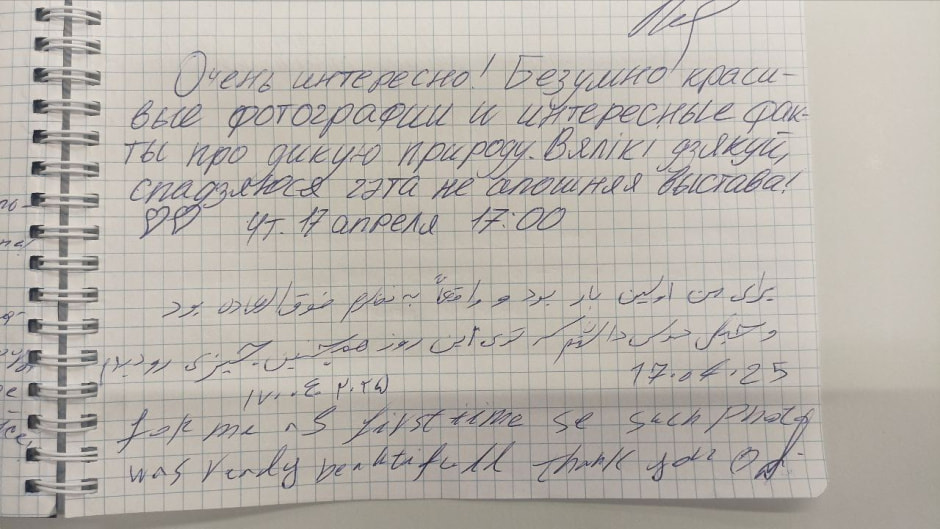 Очень интересно! Безумно краси-
вые фотографии и интересные фак-
ты про дикую природу. Вялікі дзякуй,
спадзяюся гэта не апошняя выстава!
♡♡ Чт. 17 апреля 17:00
برای من اولین بار بود و واقعاً به نظرم فوق العاده بود
و خیلی خوش که این روز همچین چیزی رو دیدم
17.04.25
۱۷.۰٤ ۲۰۲۵
for me as first time se such photo
was verdy beautifull thank you